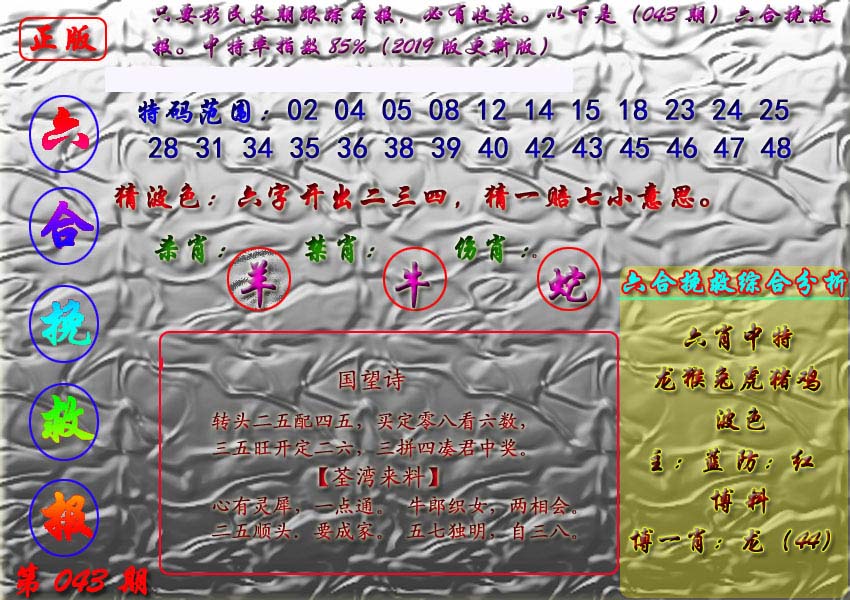 正版
只要彩民长期跟踪本报，必有收获。以下是（043期）六合挽救
报。中特率指数85%（2019版更新版）
六
合
挽
救
报
第043期
特码范围：02 04 05 08 12 14 15 18 23 24 25
28 31 34 35 36 38 39 40 42 43 45 46 47 48
猜波色：六字开出二三四，猜一赔七小意思。
杀肖：羊 禁肖：牛 伤肖：蛇。
国望诗
转头二五配四五，买定零八看六数，
三五旺开定二六，三拼四凑君中奖。
【荃湾来料】
心有灵犀，一点通。 牛郎织女，两相会。
二五顺头．要成家。 五七独明，自三八。
六合挽救综合分析
六肖中特
龙猴兔虎猪鸡
波色
主：蓝防：红
博料
博一肖：龙（44）